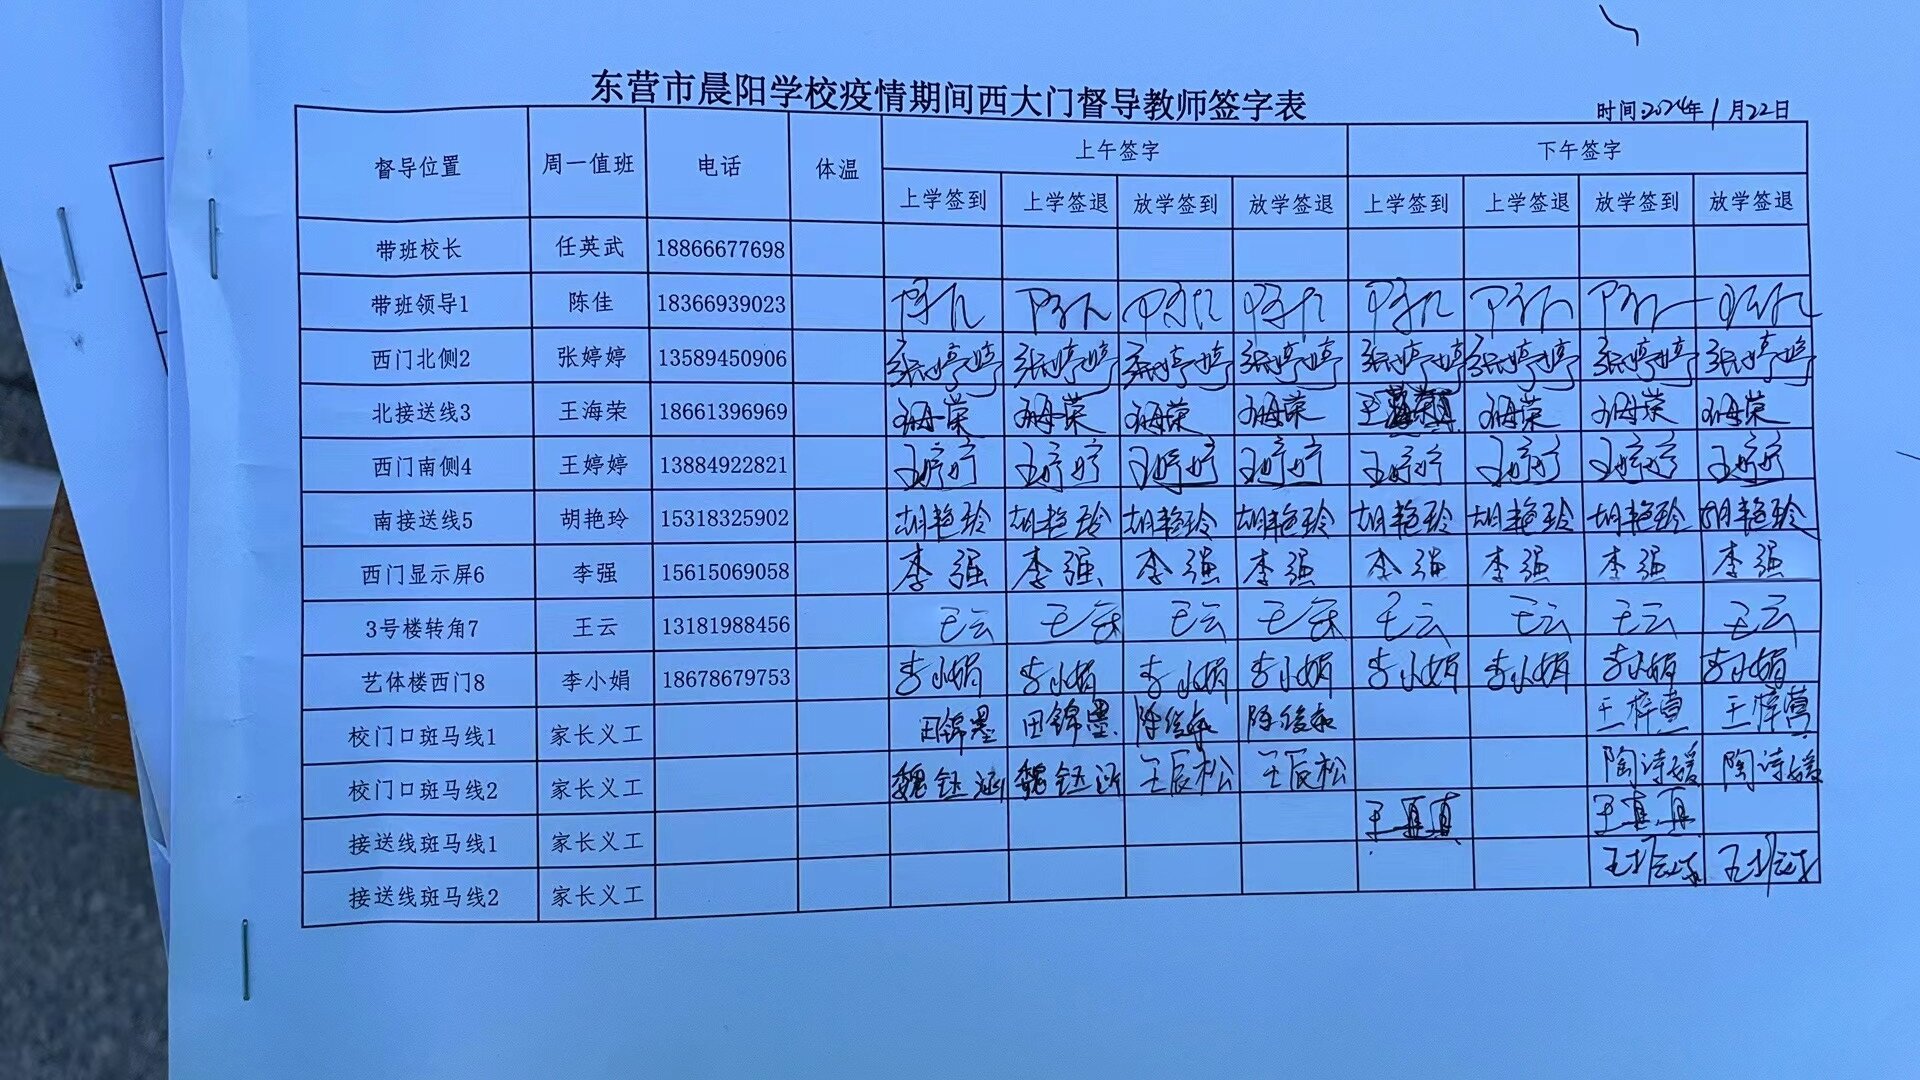 东营市晨阳学校疫情期间西大门督导教师签字表
时间:2024年1月22日
督导位置 周一值班 电话 体温 上午签字 下午签字
上学签到 上学签退 放学签到 放学签退 上学签到 上学签退 放学签到 放学签退
带班校长 任英武 18866677698
带班领导1 陈佳 18366939023 陈佳 陈佳 陈佳 陈佳 陈佳 陈佳 陈佳 陈佳
西门北侧2 张婷婷 13589450906 张婷婷 张婷婷 张婷婷 张婷婷 张婷婷 张婷婷 张婷婷 张婷婷
北接送线3 王海荣 18661396969 王海荣 王海荣 王海荣 王海荣 王海荣 王海荣 王海荣
西门南侧4 王婷婷 13884922821 王婷婷 王婷婷 王婷婷 王婷婷 王婷婷 王婷婷 王婷婷 王婷婷
南接送线5 胡艳玲 15318325902 胡艳玲 胡艳玲 胡艳玲 胡艳玲 胡艳玲 胡艳玲 胡艳玲 胡艳玲
西门显示屏6 李强 15615069058 李强 李强 李强 李强 李强 李强 李强 李强
3号楼转角7 王云 13181988456 王云 王云 王云 王云 王云 王云 王云 王云
艺体楼西门8 李小娟 18678679753 李小娟 李小娟 李小娟 李小娟 李小娟 李小娟 李小娟 李小娟
校门口斑马线1 家长义工 田锦墨 田锦墨 王梓萱 王梓萱
校门口斑马线2 家长义工 魏钰涵 魏钰涵 王辰松 王辰松 陶诗媛 陶诗媛
接送线斑马线1 家长义工 王真真 王真真
接送线斑马线2 家长义工